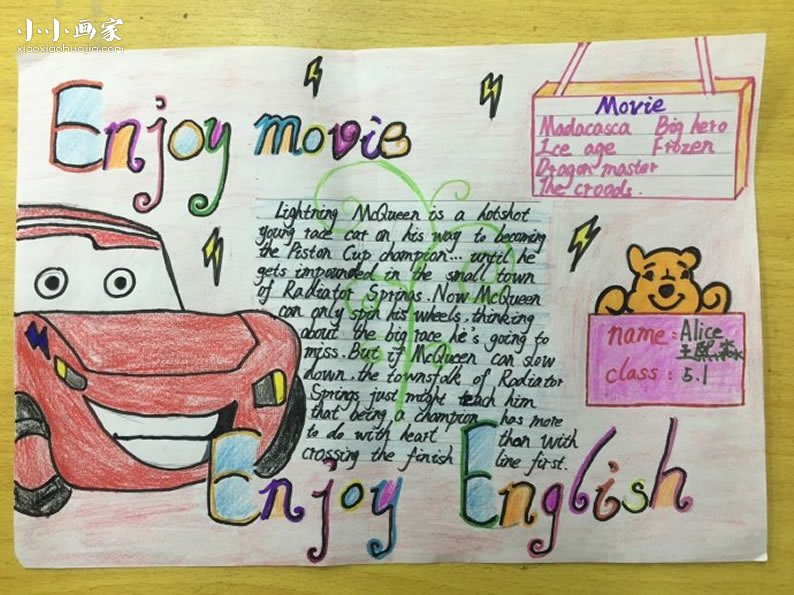 小小画家
xiaoxiaohuajia.com
Enjoy movie
Movie
Madacasca Big hero
Ice age Frozen
Dragon master
The croods.
Lightning McQueen is a hotshot
young race car on his way to becoming
the Piston Cup champion... until he
gets impounded in the small town
of Radiator Springs. Now McQueen
can only spin his wheels. thinking
about the big race he's going to
miss. But if McQueen can slow
down. the townsfolk of Radiator
Springs just might teach him
that being a champion has more
to do with heart than with
crossing the finish line first.
name: Alice
王熙淼
class: 5.1
Enjoy English